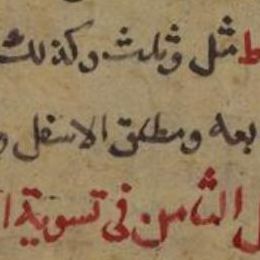 ط مثل وثلث وكذلك
بعه ومطلق الاسفل و
ل الثامن فى تسوية ا